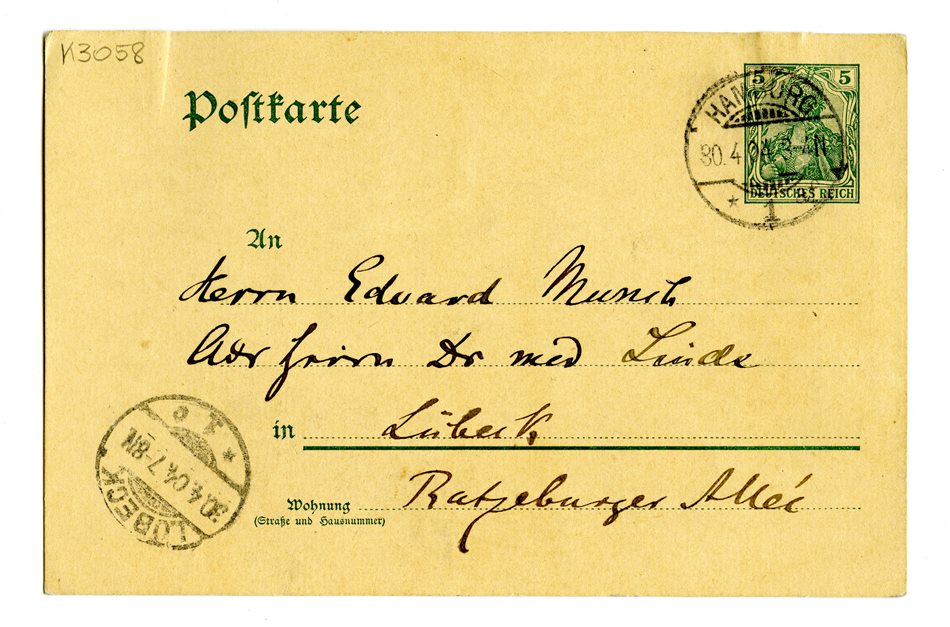 K3058
Postkarte
5 5
HAMBURG
30.4.04. 3-4N
1
DEUTSCHES REICH
An
Herrn Eduard Munch
Adr Herrn Dr med Linde
in Lübeck
Wohnung Ratzeburger Allée
(Straße und Hausnummer)
LÜBECK
30.4.04. 7-8N.